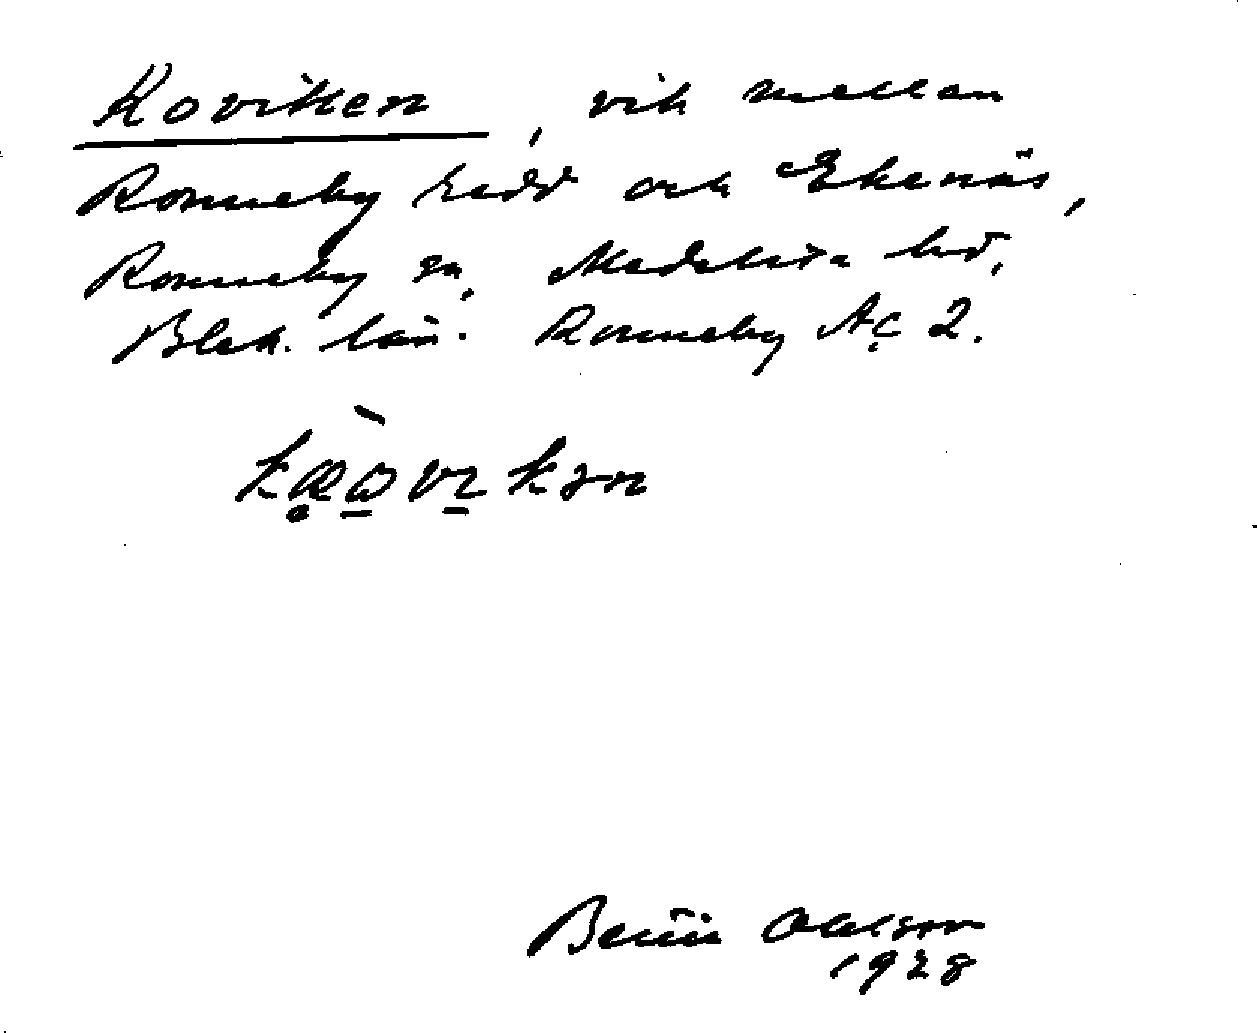 Koviken, vik mellan
Ronneby redd och Ekenäs,
Ronneby sn, Medelsta hd,
Blek. län. Ronneby Aç 2.
kæωvıkən
Ohlson
1928